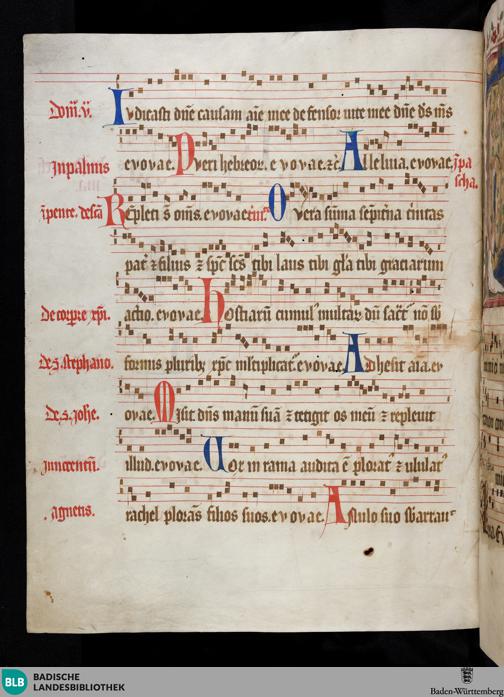 Dom̄. v̄. Iudicasti dn̄e causam aīe mee defensor uite mee dn̄e ds̄ ms̄
In palmis evovae. Pueri hebreor. evovae. Alleluia. evovae. In pa
scha.
Repleti s̄ om̄s. evovae. O vera sūma sēpit̄na t̄nitas
pat̄ ⁊ filius ⁊ sp̄c sc̄s tibi laus tibi gl̄a tibi graciarum
de corpore xp̄i. actio. evovae. Hostiarū cumul' multar̄ dū sac̄t nō sb
de s. stephano. formis pluribꝫ xp̄c multiplicat̄. evovae. Adhesit aīa. ev
de s. joh̄e. ovae. Misit dn̄s manū suā ⁊ tetigit os meū ⁊ repleuit
Innocentū. illud. evovae. Vox in rama audita ē plorat̄ ⁊ ululat̄
agnetis. rachel plorās filios suos. evovae. Anulo suo sb̄arrau
BLB BADISCHE
LANDESBIBLIOTHEK
Baden-Württemberg